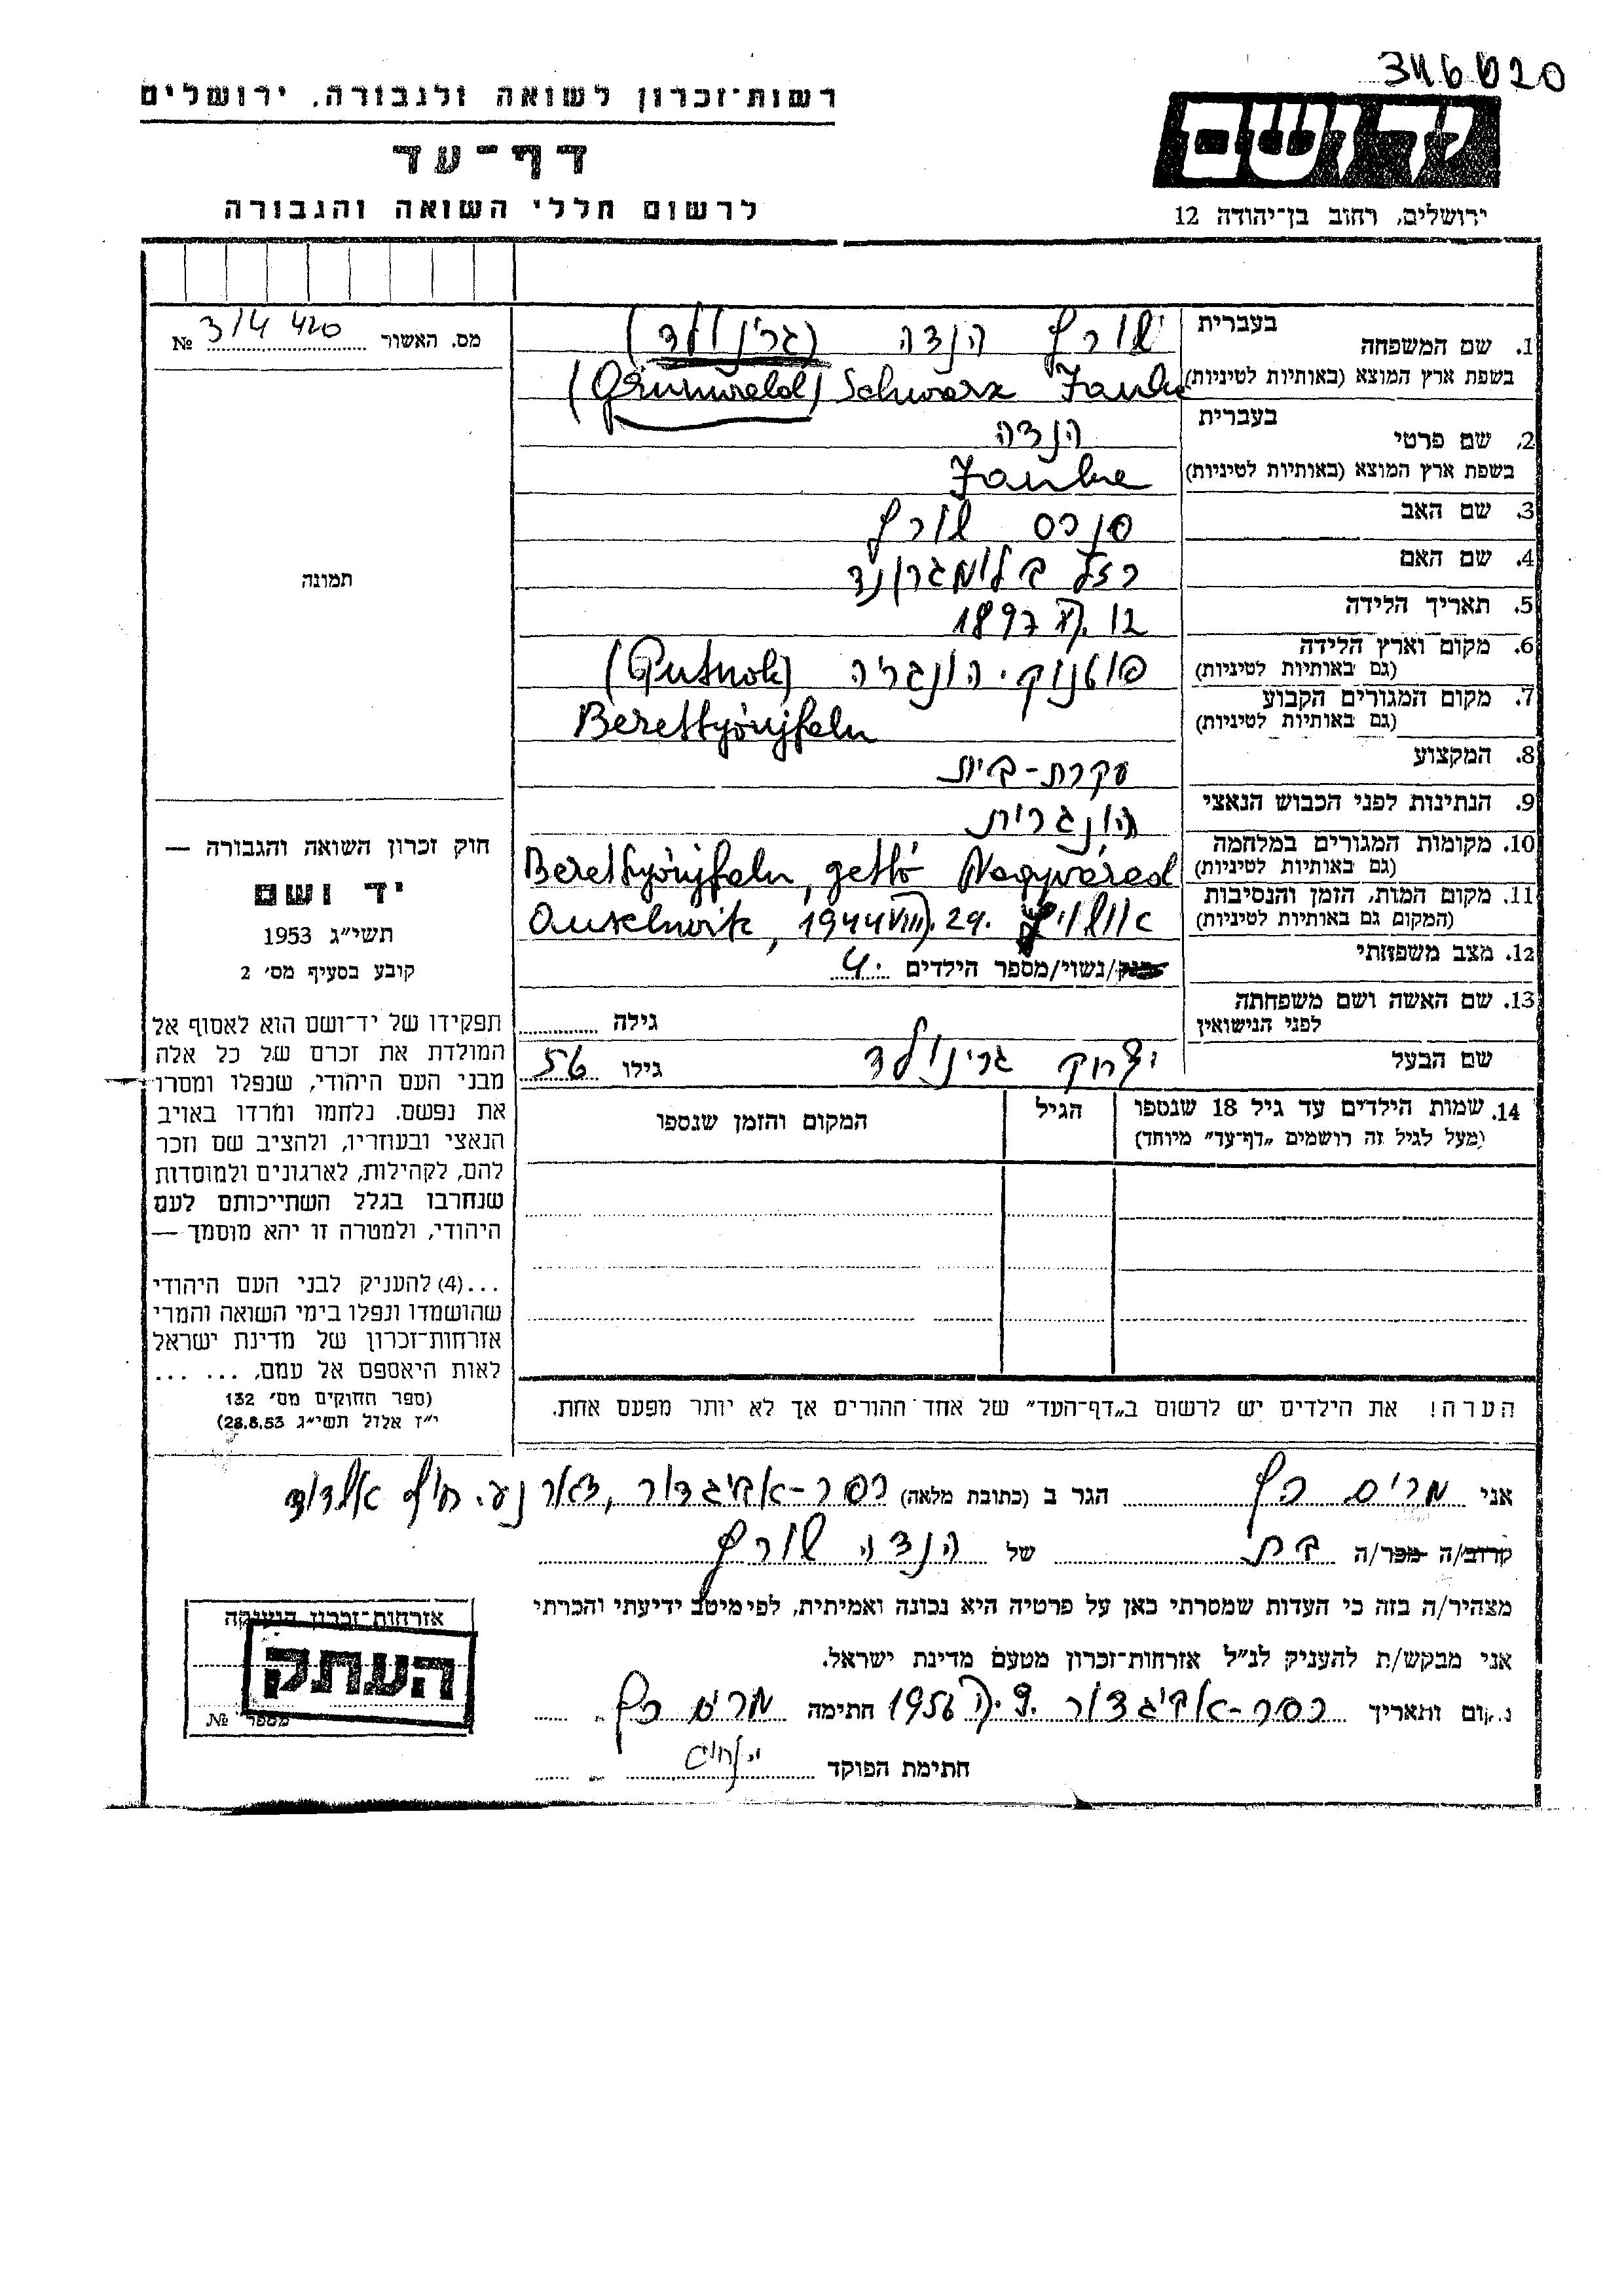 רשות־זכרון לשואה ולגבורה, ירושלים
דף־עד
לרשום חללי השואה והגבורה
יד ושם
ירושלים, רחוב בן־יהודה 12
מס. האשור 314420 №
תמונה
חוק זכרון השואה והגבורה —
יד ושם
תשי״ג 1953
קובע בסעיף מס׳ 2
תפקידו של יד־ושם הוא לאסוף אל
המולדת את זכרם של כל אלה
מבני העם היהודי, שנפלו ומסרו
את נפשם, נלחמו ומרדו באויב
הנאצי ובעוזריו, ולהציב שם וזכר
להם, לקהילות, לארגונים ולמוסדות
שנחרבו בגלל השתייכותם לעם
היהודי, ולמטרה זו יהא מוסמך —
...(4) להעניק לבני העם היהודי
שהושמדו ונפלו בימי השואה והמרי
אזרחות־זכרון של מדינת ישראל
לאות היאספם אל עמם, ... ...
(ספר החוקים מס׳ 132
י״ז אלול תשי״ג 28.8.53)
1. שם המשפחה בעברית שורץ הנדה (גרינולד)
בשפת ארץ המוצא (באותיות לטיניות) (Grünwald) Schwarz
2. שם פרטי בעברית הנדה
בשפת ארץ המוצא (באותיות לטיניות)
3. שם האב שורץ
4. שם האם רזל בלומגרונד
5. תאריך הלידה 1897
6. מקום וארץ הלידה (גם באותיות לטיניות) פוטנוק. הונגריה (Putnok)
7. מקום המגורים הקבוע (גם באותיות לטיניות) Berettyóujfalu
8. המקצוע עקרת-בית
9. הנתינות לפני הכבוש הנאצי הונגרית
10. מקומות המגורים במלחמה (גם באותיות לטיניות) Berettyóujfalu, gettó Nagyvárad
11. מקום המות, הזמן והנסיבות (המקום גם באותיות לטיניות) אושויץ 1944 VIII. 29.
12. מצב משפחתי רוק/נשוי/מספר הילדים 4.
13. שם האשה ושם משפחתה לפני הנישואין גילה
שם הבעל יצחק גרינולד גילו 56
14. שמות הילדים עד גיל 18 שנספו (מעל לגיל זה רושמים „דף־עד״ מיוחד) הגיל המקום והזמן שנספו
הערה! את הילדים יש לרשום ב„דף־העד״ של אחד ההורים אך לא יותר מפעם אחת.
אני מרים כץ הגר ב (כתובת מלאה) כפר-אביגדור, דאר נע.
קרוב/ה מכר/ה בת של הנדה שורץ
מצהיר/ה בזה כי העדות שמסרתי כאן על פרטיה היא נכונה ואמיתית, לפי מיטב ידיעתי והכרתי
אני מבקש/ת להעניק לנ״ל אזרחות־זכרון מטעם מדינת ישראל.
מקום ותאריך כפר-אביגדור 1956 חתימה מרים כץ
חתימת הפוקד
אזרחות־זכרון הוענקה
העתק
מספר №